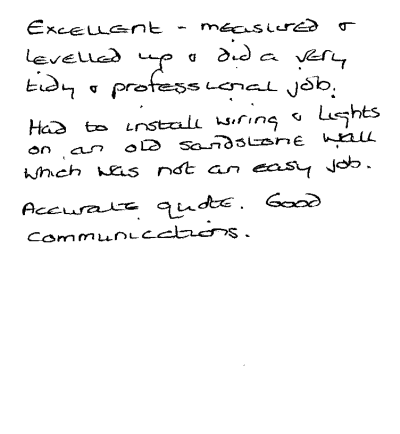 Excellent - measured &
levelled up & did a very
tidy & professional job.
Had to install wiring & lights
on an old sandstone wall
which was not an easy job.
Accurate quote. Good
communications.